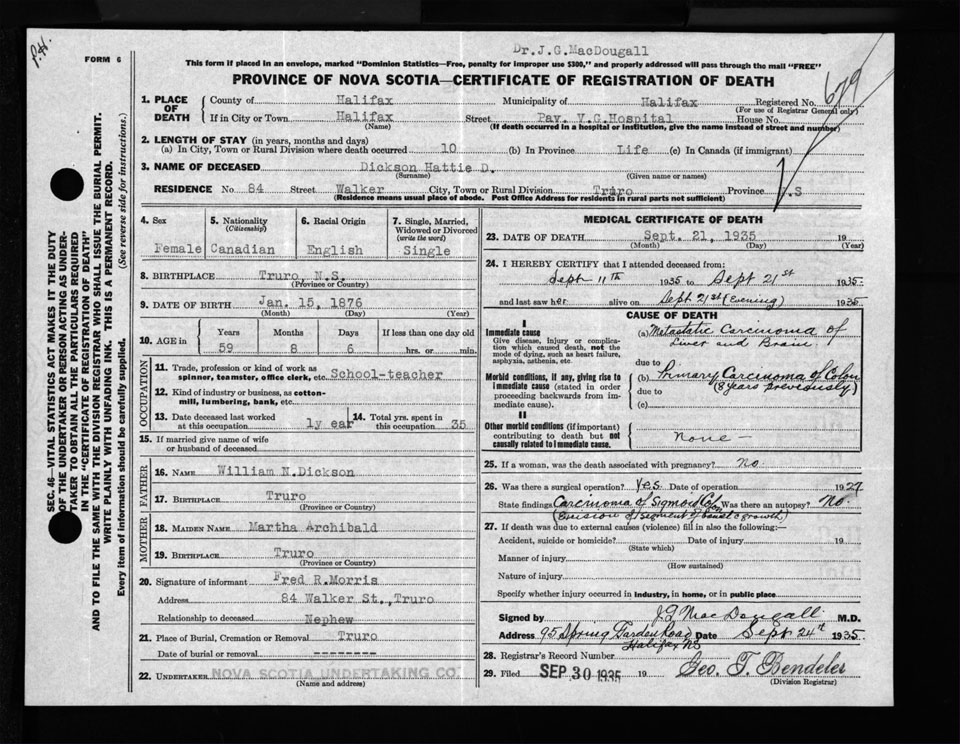 P.H.
FORM 6
Dr.J.G.MacDougall
This form if placed in an envelope, marked "Dominion Statistics—Free, penalty for improper use $300," and properly addressed will pass through the mail "FREE"
PROVINCE OF NOVA SCOTIA—CERTIFICATE OF REGISTRATION OF DEATH
679
1. PLACE OF DEATH
County of Halifax Municipality of Halifax Registered No.
(For use of Registrar General only)
If in City or Town Halifax Street Pav. V.G.Hospital House No.
(Name) (If death occurred in a hospital or institution, give the name instead of street and number)
2. LENGTH OF STAY (in years, months and days)
(a) In City, Town or Rural Division where death occurred 10 (b) In Province Life (c) In Canada (if immigrant)
3. NAME OF DECEASED Dickson Hattie D.
(Surname) (Given name or names)
RESIDENCE No. 84 Street Walker City, Town or Rural Division Truro Province .S
(Residence means usual place of abode. Post Office Address for residents in rural parts not sufficient)
4. Sex
Female
5. Nationality
(Citizenship)
Canadian
6. Racial Origin
English
7. Single, Married,
Widowed or Divorced
(write the word)
Single
8. BIRTHPLACE Truro, N.S.
(Province or Country)
9. DATE OF BIRTH Jan. 15, 1876
(Month) (Day) (Year)
10. AGE in
Years Months Days If less than one day old
59 8 6 hrs. or min.
OCCUPATION
11. Trade, profession or kind of work as
spinner, teamster, office clerk, etc. School-teacher
12. Kind of industry or business, as cotton-
mill, lumbering, bank, etc.
13. Date deceased last worked
at this occupation 1y ear
14. Total yrs. spent in
this occupation 35
15. If married give name of wife
or husband of deceased
FATHER
16. NAME William N.Dickson
17. BIRTHPLACE Truro
(Province or Country)
MOTHER
18. MAIDEN NAME Martha Archibald
19. BIRTHPLACE Truro
(Province or Country)
20. Signature of informant Fred R.Morris
Address 84 Walker St.,Truro
Relationship to deceased Nephew
21. Place of Burial, Cremation or Removal Truro
Date of burial or removal --------
22. UNDERTAKER NOVA SCOTIA UNDERTAKING CO.
(Name and address)
MEDICAL CERTIFICATE OF DEATH
23. DATE OF DEATH Sept. 21, 1935 19
(Month) (Day) (Year)
24. I HEREBY CERTIFY that I attended deceased from:
Sept 11th 1935 to Sept 21st 1935
and last saw her alive on Sept 21st (Evening) 1935
CAUSE OF DEATH
I
Immediate cause
Give disease, injury or complica-
tion which caused death, not the
mode of dying, such as heart failure,
asphyxia, asthenia, etc.
(a) Metastatic Carcinoma of
Liver and Brain
due to
Morbid conditions, if any, giving rise to
immediate cause (stated in order
proceeding backwards from im-
mediate cause).
(b) Primary Carcinoma of Colon
due to (8 years previously)
(c)
II
Other morbid conditions (if important)
contributing to death but not
causally related to immediate cause.
None —
25. If a woman, was the death associated with pregnancy? No
26. Was there a surgical operation? Yes Date of operation 1927
State findings Carcinoma of Sigmoid Colon Was there an autopsy? No.
27. If death was due to external causes (violence) fill in also the following:—
Accident, suicide or homicide? Date of injury 19
(State which)
Manner of injury
(How sustained)
Nature of injury
Specify whether injury occurred in industry, in home, or in public place
Signed by J.G. MacDougall M.D.
Address 95 Spring Garden Road Date Sept 24th 1935
Halifax NS
28. Registrar's Record Number
29. Filed SEP 30 1935 19 Geo. T. Bendeler
(Division Registrar)
SEC. 46—VITAL STATISTICS ACT MAKES IT THE DUTY
OF THE UNDERTAKER OR PERSON ACTING AS UNDER-
TAKER TO OBTAIN ALL THE PARTICULARS REQUIRED
IN THE "CERTIFICATE OF REGISTRATION OF DEATH"
AND TO FILE THE SAME WITH THE DIVISION REGISTRAR WHO SHALL ISSUE THE BURIAL PERMIT.
WRITE PLAINLY WITH UNFADING INK. THIS IS A PERMANENT RECORD.
Every item of information should be carefully supplied. (See reverse side for instructions.)